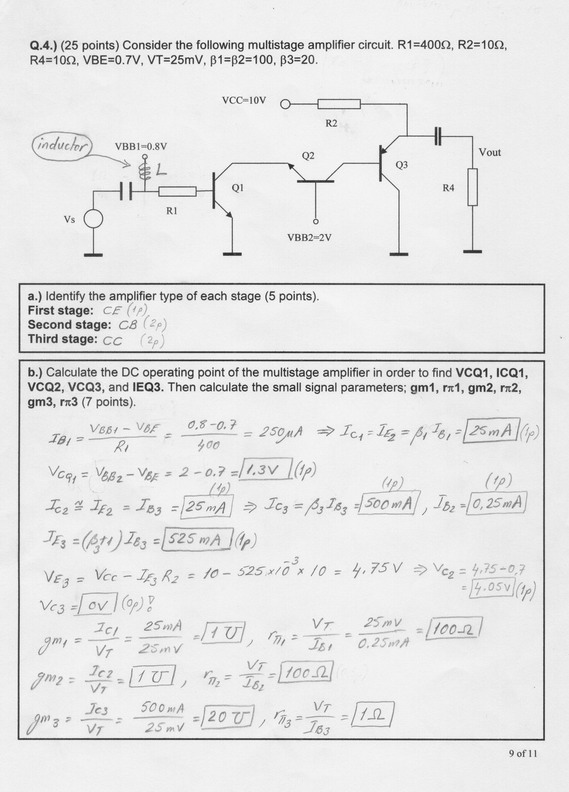 Q.4.) (25 points) Consider the following multistage amplifier circuit. R1=400Ω, R2=10Ω,
R4=10Ω, VBE=0.7V, VT=25mV, β1=β2=100, β3=20.
VCC=10V
R2
inductor
VBB1=0.8V
L
Q2
Q3
Vout
Q1
R1
R4
Vs
VBB2=2V
a.) Identify the amplifier type of each stage (5 points).
First stage: CE (1p)
Second stage: CB (2p)
Third stage: CC (2p)
b.) Calculate the DC operating point of the multistage amplifier in order to find VCQ1, ICQ1,
VCQ2, VCQ3, and IEQ3. Then calculate the small signal parameters; gm1, rπ1, gm2, rπ2,
gm3, rπ3 (7 points).
IB1 = (VBB1 - VBE)/R1 = (0.8-0.7)/400 = 250μA ⇒ IC1 = IE2 = β1 IB1 = 25mA (1p)
VCQ1 = VBB2 - VBE = 2 - 0.7 = 1.3V (1p)
(1p) (1p) (1p)
IC2 ≅ IE2 = IB3 = 25mA ⇒ IC3 = β3 IB3 = 500mA, IB2 = 0,25mA
IE3 = (β3+1) IB3 = 525mA (1p)
VE3 = VCC - IE3 R2 = 10 - 525×10⁻³ × 10 = 4.75V ⇒ VC2 = 4.75-0,7
= 4.05V (1p)
VC3 = 0V (0p)!
gm1 = IC1/VT = 25mA/25mV = 1 ℧, rπ1 = VT/IB1 = 25mV/0.25mA = 100Ω
gm2 = IC2/VT = 1 ℧, rπ2 = VT/IB2 = 100Ω
gm3 = IC3/VT = 500mA/25mV = 20 ℧, rπ3 = VT/IB3 = 1Ω
9 of 11